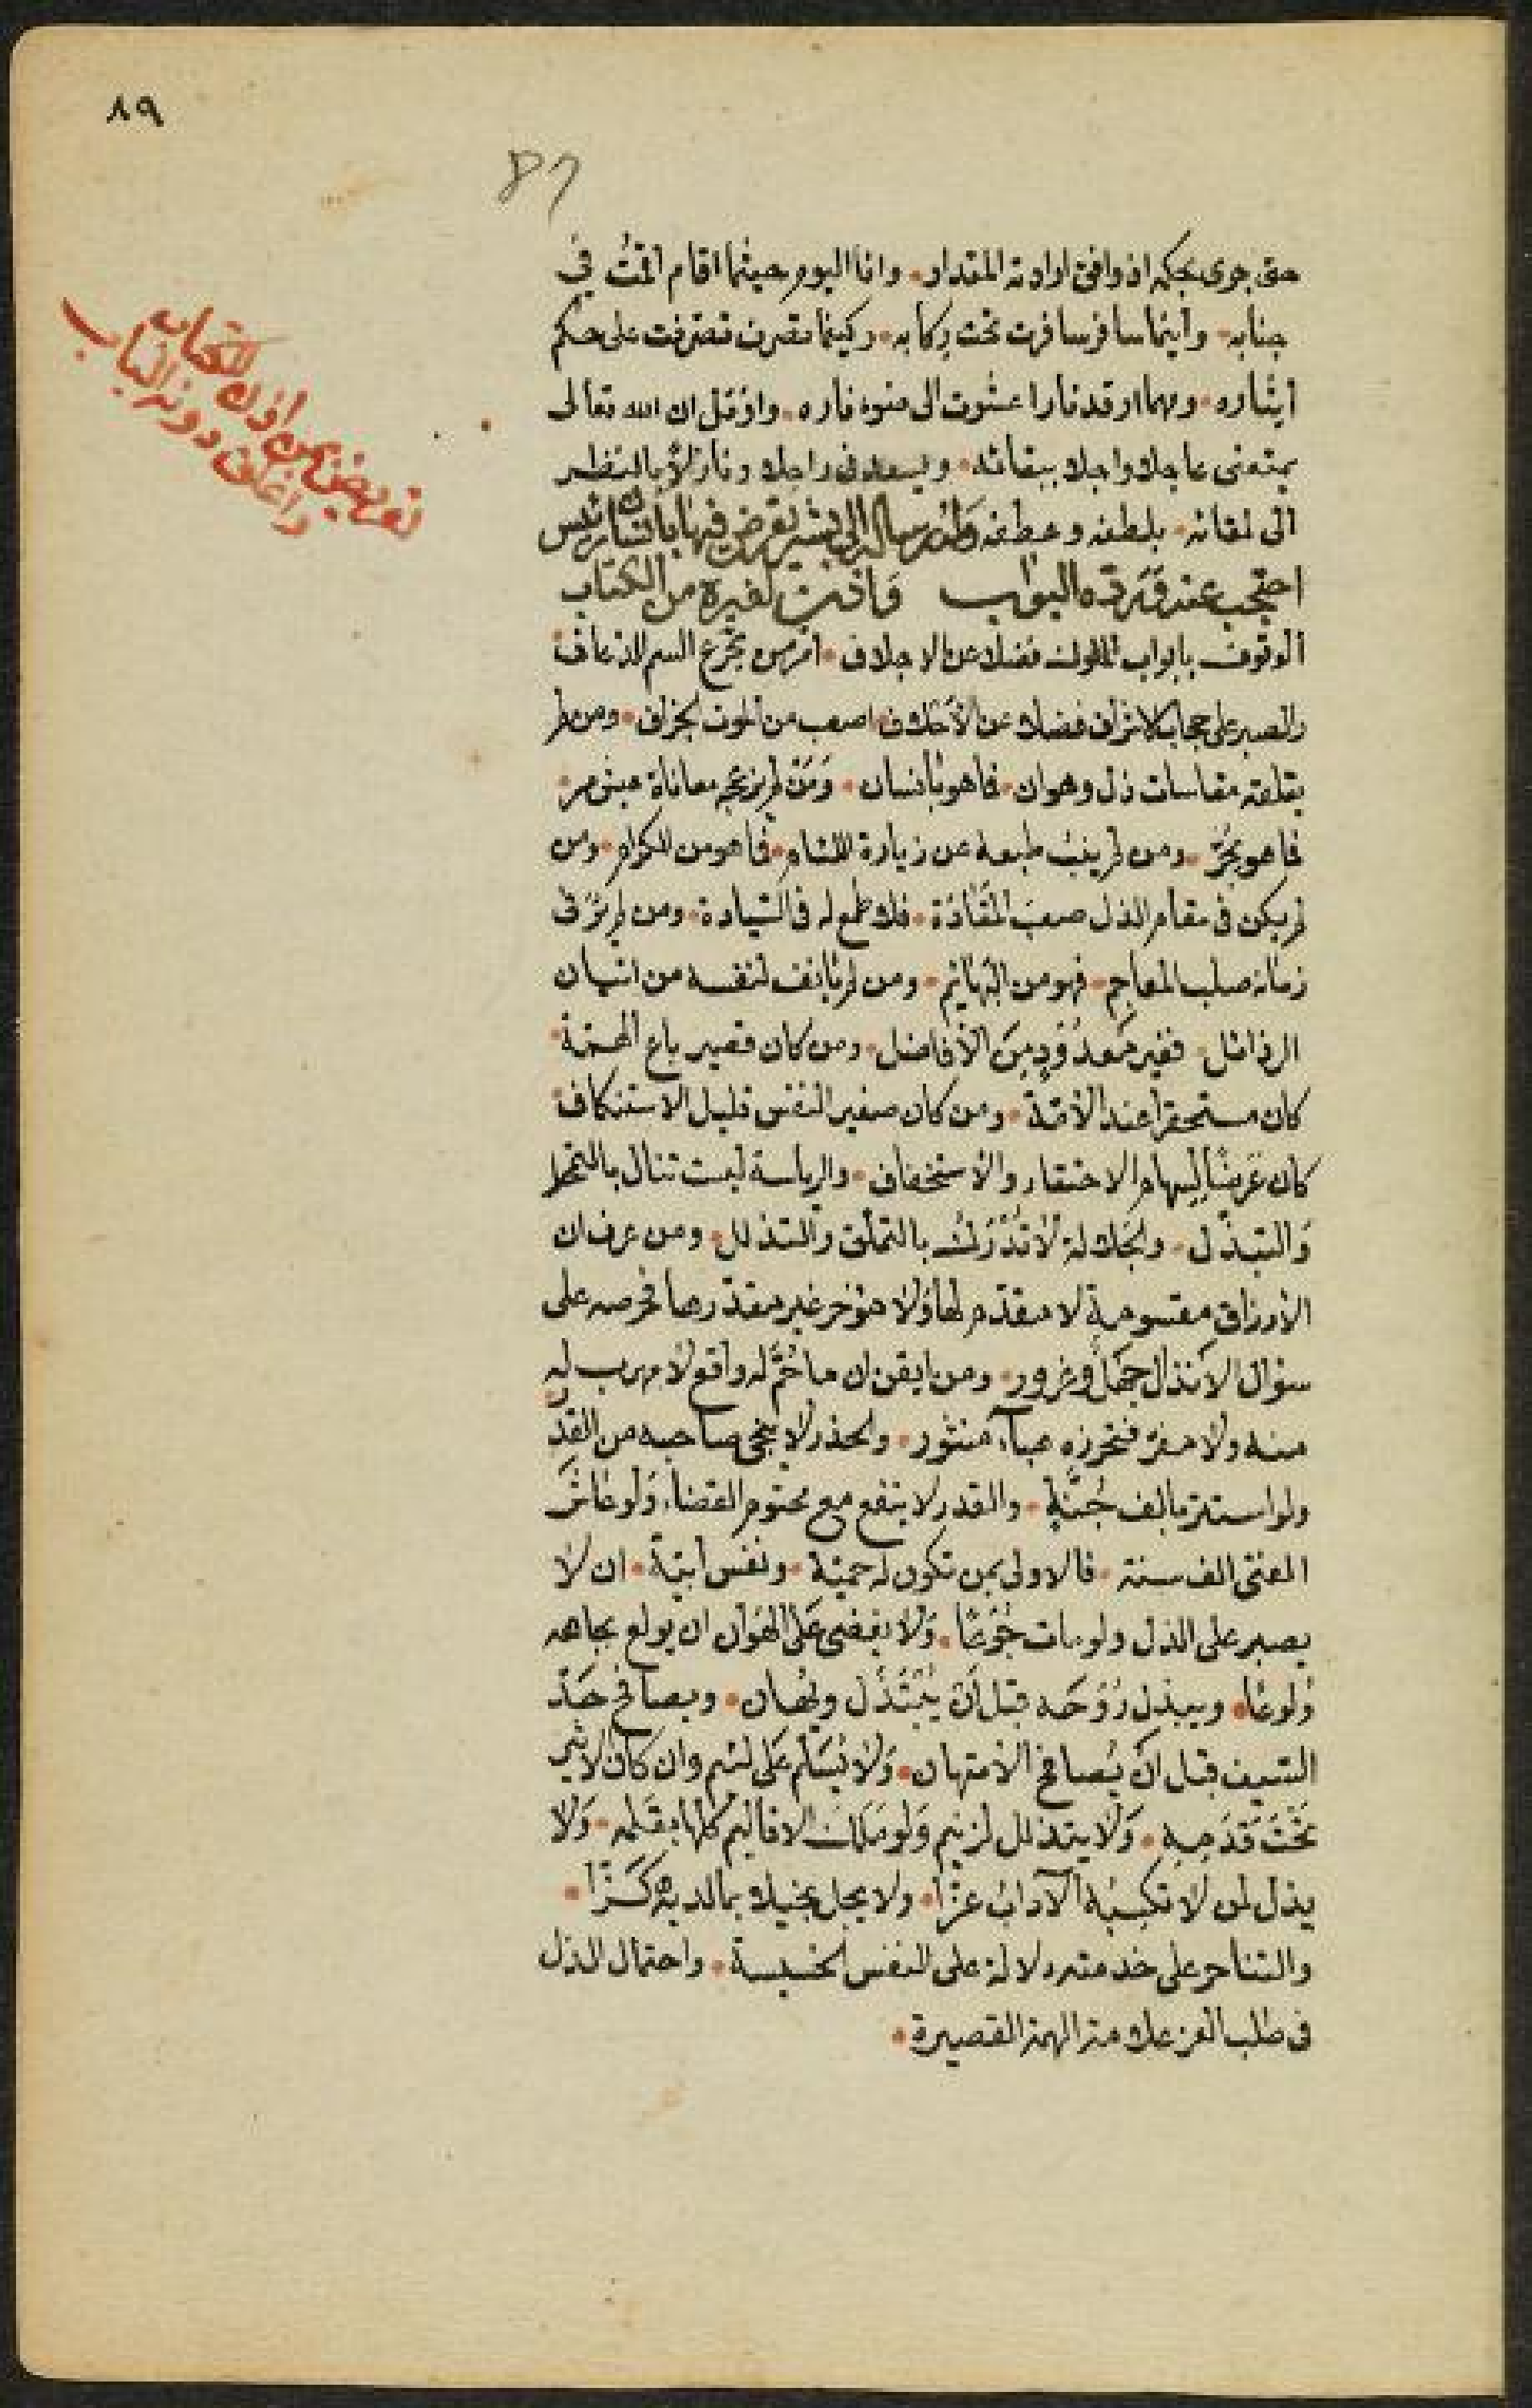 ٨٩
89
حتى جرى بحكمه اذ وافق ارادته المقدار. وانا اليوم حيثما اقام اقمتُ في
جنابه. واينما سافر سافرت تحت ركابه. وكيفما تصرف تصرفت على حكم
ايثاره. ومهما اوقد نارا عشوت الى ضوء ناره. واؤمل ان الله تعالى
يمتعنى عاجلا واجلا ببقائه. ويسعدنى راحلا ونازلاً بالنظر
الى لقائه. بلطفه وعطفه وله رسالة الى بشر يعرض فيها بانسان رئيس
احتجب عند قدومه البواب واذن لغيره من الكتاب
الوقوف بابواب الملوك فضلا عن الاجلاف. امر من تجرع السم الذعاف.
والصبر على حجاب الاشراف فضلا عن الاخلاف. اصعب من الموت الجزاف. ومن لم
يقلقه مقاسات ذل وهوان. فما هو بانسان. وَمَنْ لم يزعجه معاناة عيش مر.
فما هو بحُرّ. ومن لم ينبُ طبعه عن زيارة اللئام. فما هو من الكرام. ومن
لم يكن فى مقام الذل صعبَ المَقَادَة. فلا طمع له فى السّيادة. ومن لم يُرَ فى
زمانه صلب المعاجم. فهو من البهائم. ومن لم يانف لنفسه من اتيان
الرذائل. فغير مَعدُوُدٍ مِنَ الأفاضل. ومن كان قصير باع الهمّة.
كان مستحقراً عند الأمّة. ومن كان صغير النفس قليل الاستنكاف.
كان غَرَضًا لِسهام الاحتقار والاستخفاف. والرياسة ليست تنال بالتحمل
وَالتبذّل. والجَلالة لا تُدْرَكُ بالتملّق والتذلل. ومن عرف ان
الأرزاق مقسومة لا مقدّم لها وَلا مؤخر غير مقدّرها فحرصه على
سؤال الأنذال جهلٌ وغرور. ومن ايقن ان ما حُمَّ له واقع لا مهرب له
منه ولا مفرّ فتحرزه هباء منثور. والحذر لا ينجى صاحبه من القدَر
ولو استتر بالف جُنّةٍ. والقدر لا ينفع مع محتوم القضاء وَلو عاشَ
الفتى الف سنة. فالاولى بمن تكون له حميّة. ونفس ابيّة. ان لا
يصبر على الذل ولو مات جُوُعًا. وَلا يغضى عَلَى الهَوان ان يولع بجاهه
وُلوعًا. ويبذل رُوُحَه قبل اَن يُبْتَذَل ويُهان. ويصافح حَدّ
السّيف قبل اَن يُصافح الامتهان. وَلا يُسَلّم عَلى لئيم وان كان الاثير
تَحْتَ قَدَمِهِ. وَلا يتذلل لزنيم وَلو مَلَك الاقاليم كلها بقَلمه. وَلا
يذل لمن لا تكسبُه الآدابُ عزّاً. ولا يجل بخيلا بما لديه كَزّاً.
والتناحر على خدمته دلالة على النفس الخسيسة. واحتمال الذل
فى طلب العز علامة الهمة القصيرة.